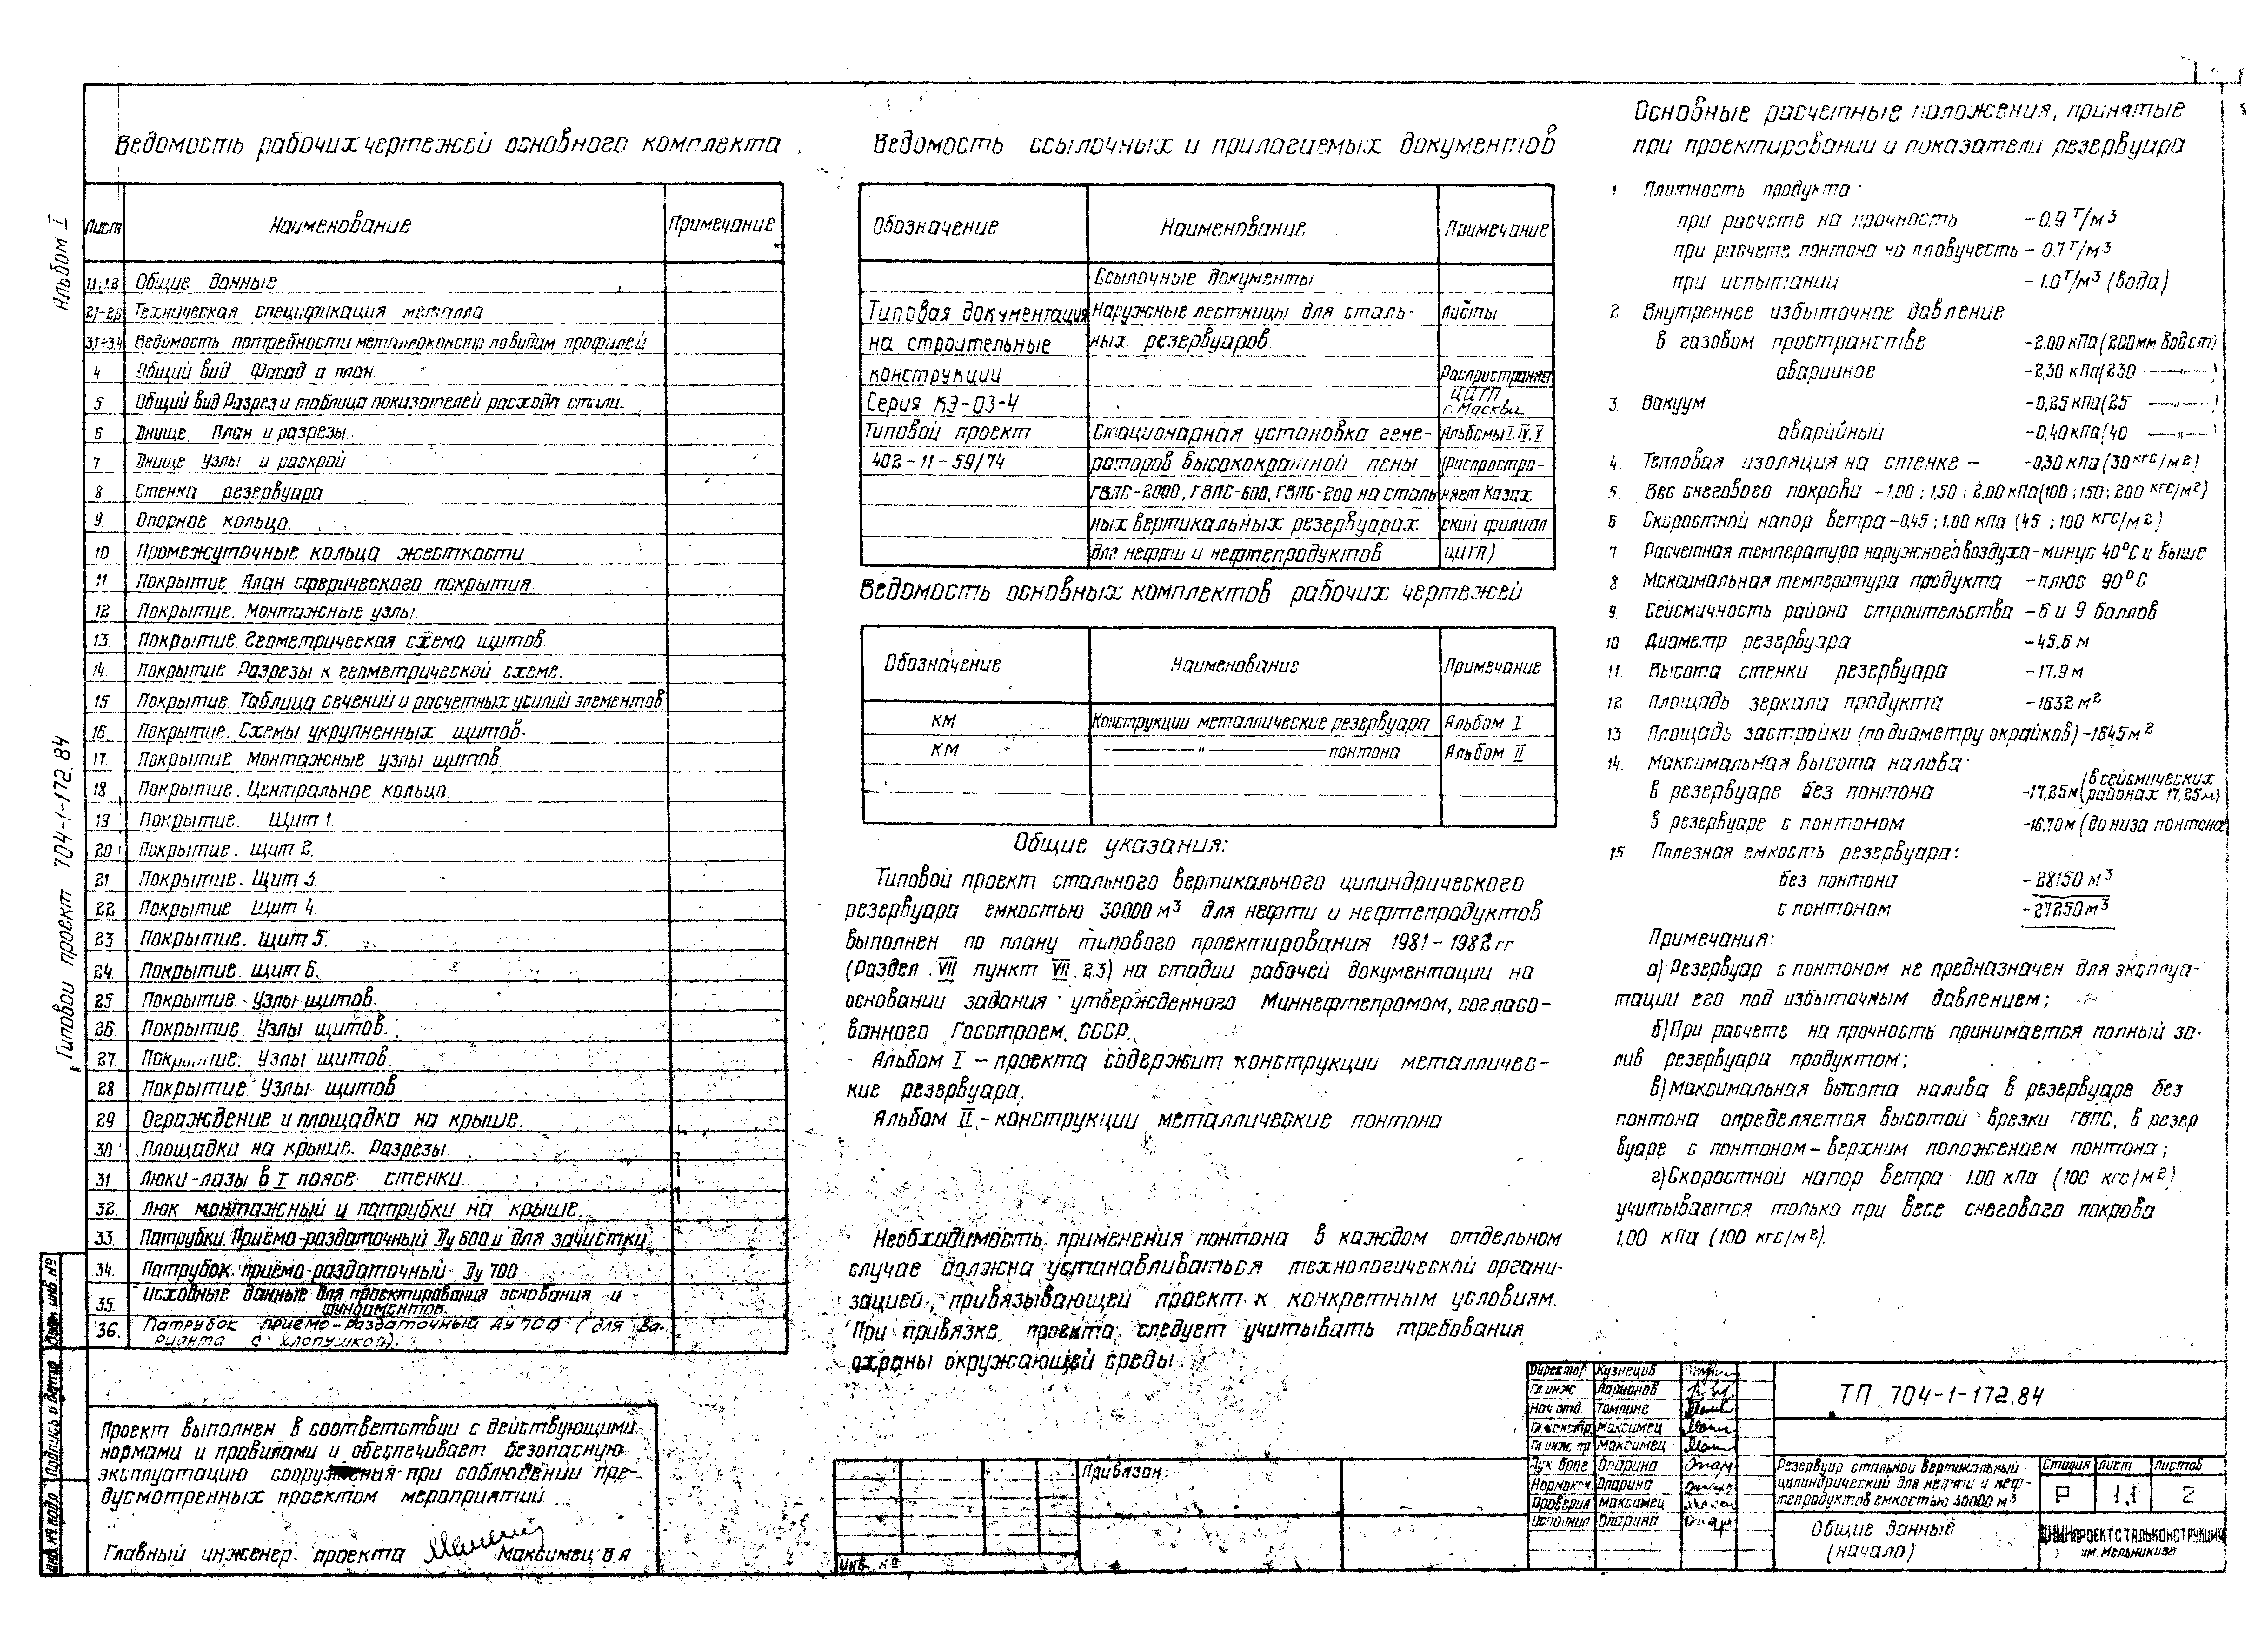 Альбом I
Типовой проект 704-1-172.84
Ведомость рабочих чертежей основного комплекта
Лист Наименование Примечание
1.1÷1.2 Общие данные
2.1-2.6 Техническая спецификация металла
3.1÷3.4 Ведомость потребности металлоконстр по видам профилей
4 Общий вид. Фасад и план.
5 Общий вид Разрез и таблица показателей расхода стали.
6 Днище. План и разрезы.
7. Днище Узлы и раскрой
8 Стенка резервуара
9. Опорное кольцо.
10 Промежуточные кольца жесткости
11 Покрытие План сферического покрытия.
12 Покрытие. Монтажные узлы
13. Покрытие. Геометрическая схема щитов.
14. Покрытие Разрезы к геометрической схеме.
15 Покрытие. Таблица сечений и расчетных усилий элементов
16. Покрытие. Схемы укрупненных щитов.
17. Покрытие Монтажные узлы щитов
18 Покрытие. Центральное кольцо.
19 Покрытие. Щит 1.
20 Покрытие. Щит 2.
21 Покрытие. Щит 3.
22 Покрытие. Щит 4.
23 Покрытие. Щит 5.
24. Покрытие. Щит 6.
25 Покрытие. Узлы щитов.
26. Покрытие. Узлы щитов.
27. Покрытие. Узлы щитов.
28 Покрытие. Узлы щитов
29. Ограждение и площадка на крыше.
30 Площадки на крыше. Разрезы.
31 Люки-лазы в I поясе стенки.
32. Люк монтажный и патрубки на крыше.
33. Патрубки. Приёмо-раздаточный Ду 600 и для зачистки
34. Патрубок приёмо-раздаточный Ду 700
35. Исходные данные для проектирования основания и
фундаментов.
36. Патрубок приемо-раздаточный Ду 700 (для ва-
рианта с хлопушкой).
Проект выполнен в соответствии с действующими
нормами и правилами и обеспечивает безопасную
эксплуатацию сооружения при соблюдении пре-
дусмотренных проектом мероприятий
Главный инженер проекта Максимец В.А
Инв. № подл. Подпись и дата Взам. инв. №
Ведомость ссылочных и прилагаемых документов
Обозначение Наименование Примечание
Ссылочные документы
Типовая документация Наружные лестницы для сталь- Листы
на строительные ных резервуаров.
конструкции Распространяет
Серия КЭ-03-4 ЦИТП г. Москва
Типовой проект Стационарная установка гене- Альбомы I, IV, V
402-11-59/74 раторов высокократной пены (распростра-
ГВПС-2000, ГВПС-600, ГВПС-200 на сталь няет Казах
ных вертикальных резервуарах ский филиал
для нефти и нефтепродуктов ЦИТП)
Ведомость основных комплектов рабочих чертежей
Обозначение Наименование Примечание
КМ Конструкции металлические резервуара Альбом I
КМ —"— понтона Альбом II
Общие указания:
Типовой проект стального вертикального цилиндрического
резервуара емкостью 30000 м³ для нефти и нефтепродуктов
выполнен по плану типового проектирования 1981-1982 гг
(Раздел VII пункт VII.2.3) на стадии рабочей документации на
основании задания утвержденного Миннефтепромом, согласо-
ванного Госстроем, СССР.
Альбом I - проекта содержит конструкции металличес-
кие резервуара.
Альбом II - конструкции металлические понтона
Необходимость применения понтона в каждом отдельном
случае должна устанавливаться технологической органи-
зацией, привязывающей проект к конкретным условиям.
При привязке проекта следует учитывать требования
охраны окружающей среды.
Основные расчетные положения, принятые
при проектировании и показатели резервуара
1 Плотность продукта:
при расчете на прочность - 0.9 Т/м³
при расчете понтона на пловучесть - 0.7 Т/м³
при испытании - 1.0 Т/м³ (вода)
2 Внутреннее избыточное давление
в газовом пространстве - 2.00 кПа (200 мм вод ст)
аварийное - 2,30 кПа (230 —"—)
3. Вакуум - 0,25 кПа (25 —"—)
аварийный - 0,40 кПа (40 —"—)
4. Тепловая изоляция на стенке - - 0,30 кПа (30 кгс/м²)
5. Вес снегового покрова - 1,00; 1,50; 2,00 кПа (100; 150; 200 кгс/м²)
6 Скоростной напор ветра - 0,45; 1.00 кПа (45; 100 кгс/м²)
7 Расчетная температура наружного воздуха - минус 40°С и выше
8. Максимальная температура продукта - плюс 90°С
9. Сейсмичность района строительства - 6 и 9 баллов
10 Диаметр резервуара - 45.6 м
11. Высота стенки резервуара - 17.9 м
12 Площадь зеркала продукта - 1632 м²
13 Площадь застройки (по диаметру окрайков) - 1645 м²
14. Максимальная высота налива:
в резервуаре без понтона - 17,25 м (в сейсмических районах 17,25 м)
в резервуаре с понтоном - 16.70 м (до низа понтона
15 Полезная емкость резервуара:
без понтона - 28150 м³
с понтоном - 27250 м³
Примечания:
а) Резервуар с понтоном не предназначен для эксплуа-
тации его под избыточным давлением;
б) При расчете на прочность принимается полный за-
лив резервуара продуктом;
в) Максимальная высота налива в резервуаре без
понтона определяется высотой врезки ГВПС, в резер
вуаре с понтоном - верхним положением понтона;
г) Скоростной напор ветра 1.00 кПа (100 кгс/м²)
учитывается только при весе снегового покрова
1,00 кПа (100 кгс/м²).
Привязан:
Инв. №
Директор Кузнецов
Гл инж Ларионов
Нач отд Томлинг
Гл констр Максимец
Гл инж пр Максимец
Рук бриг Опарина
Нормокн. Опарина
Проверил Максимец
Исполнил Опарина
ТП 704-1-172.84
Резервуар стальной вертикальный
цилиндрический для нефти и неф-
тепродуктов емкостью 30000 м³
Стадия Лист Листов
Р 1.1 2
Общие данные
(начало)
ЦНИИПРОЕКТСТАЛЬКОНСТРУКЦИЯ
им. Мельникова